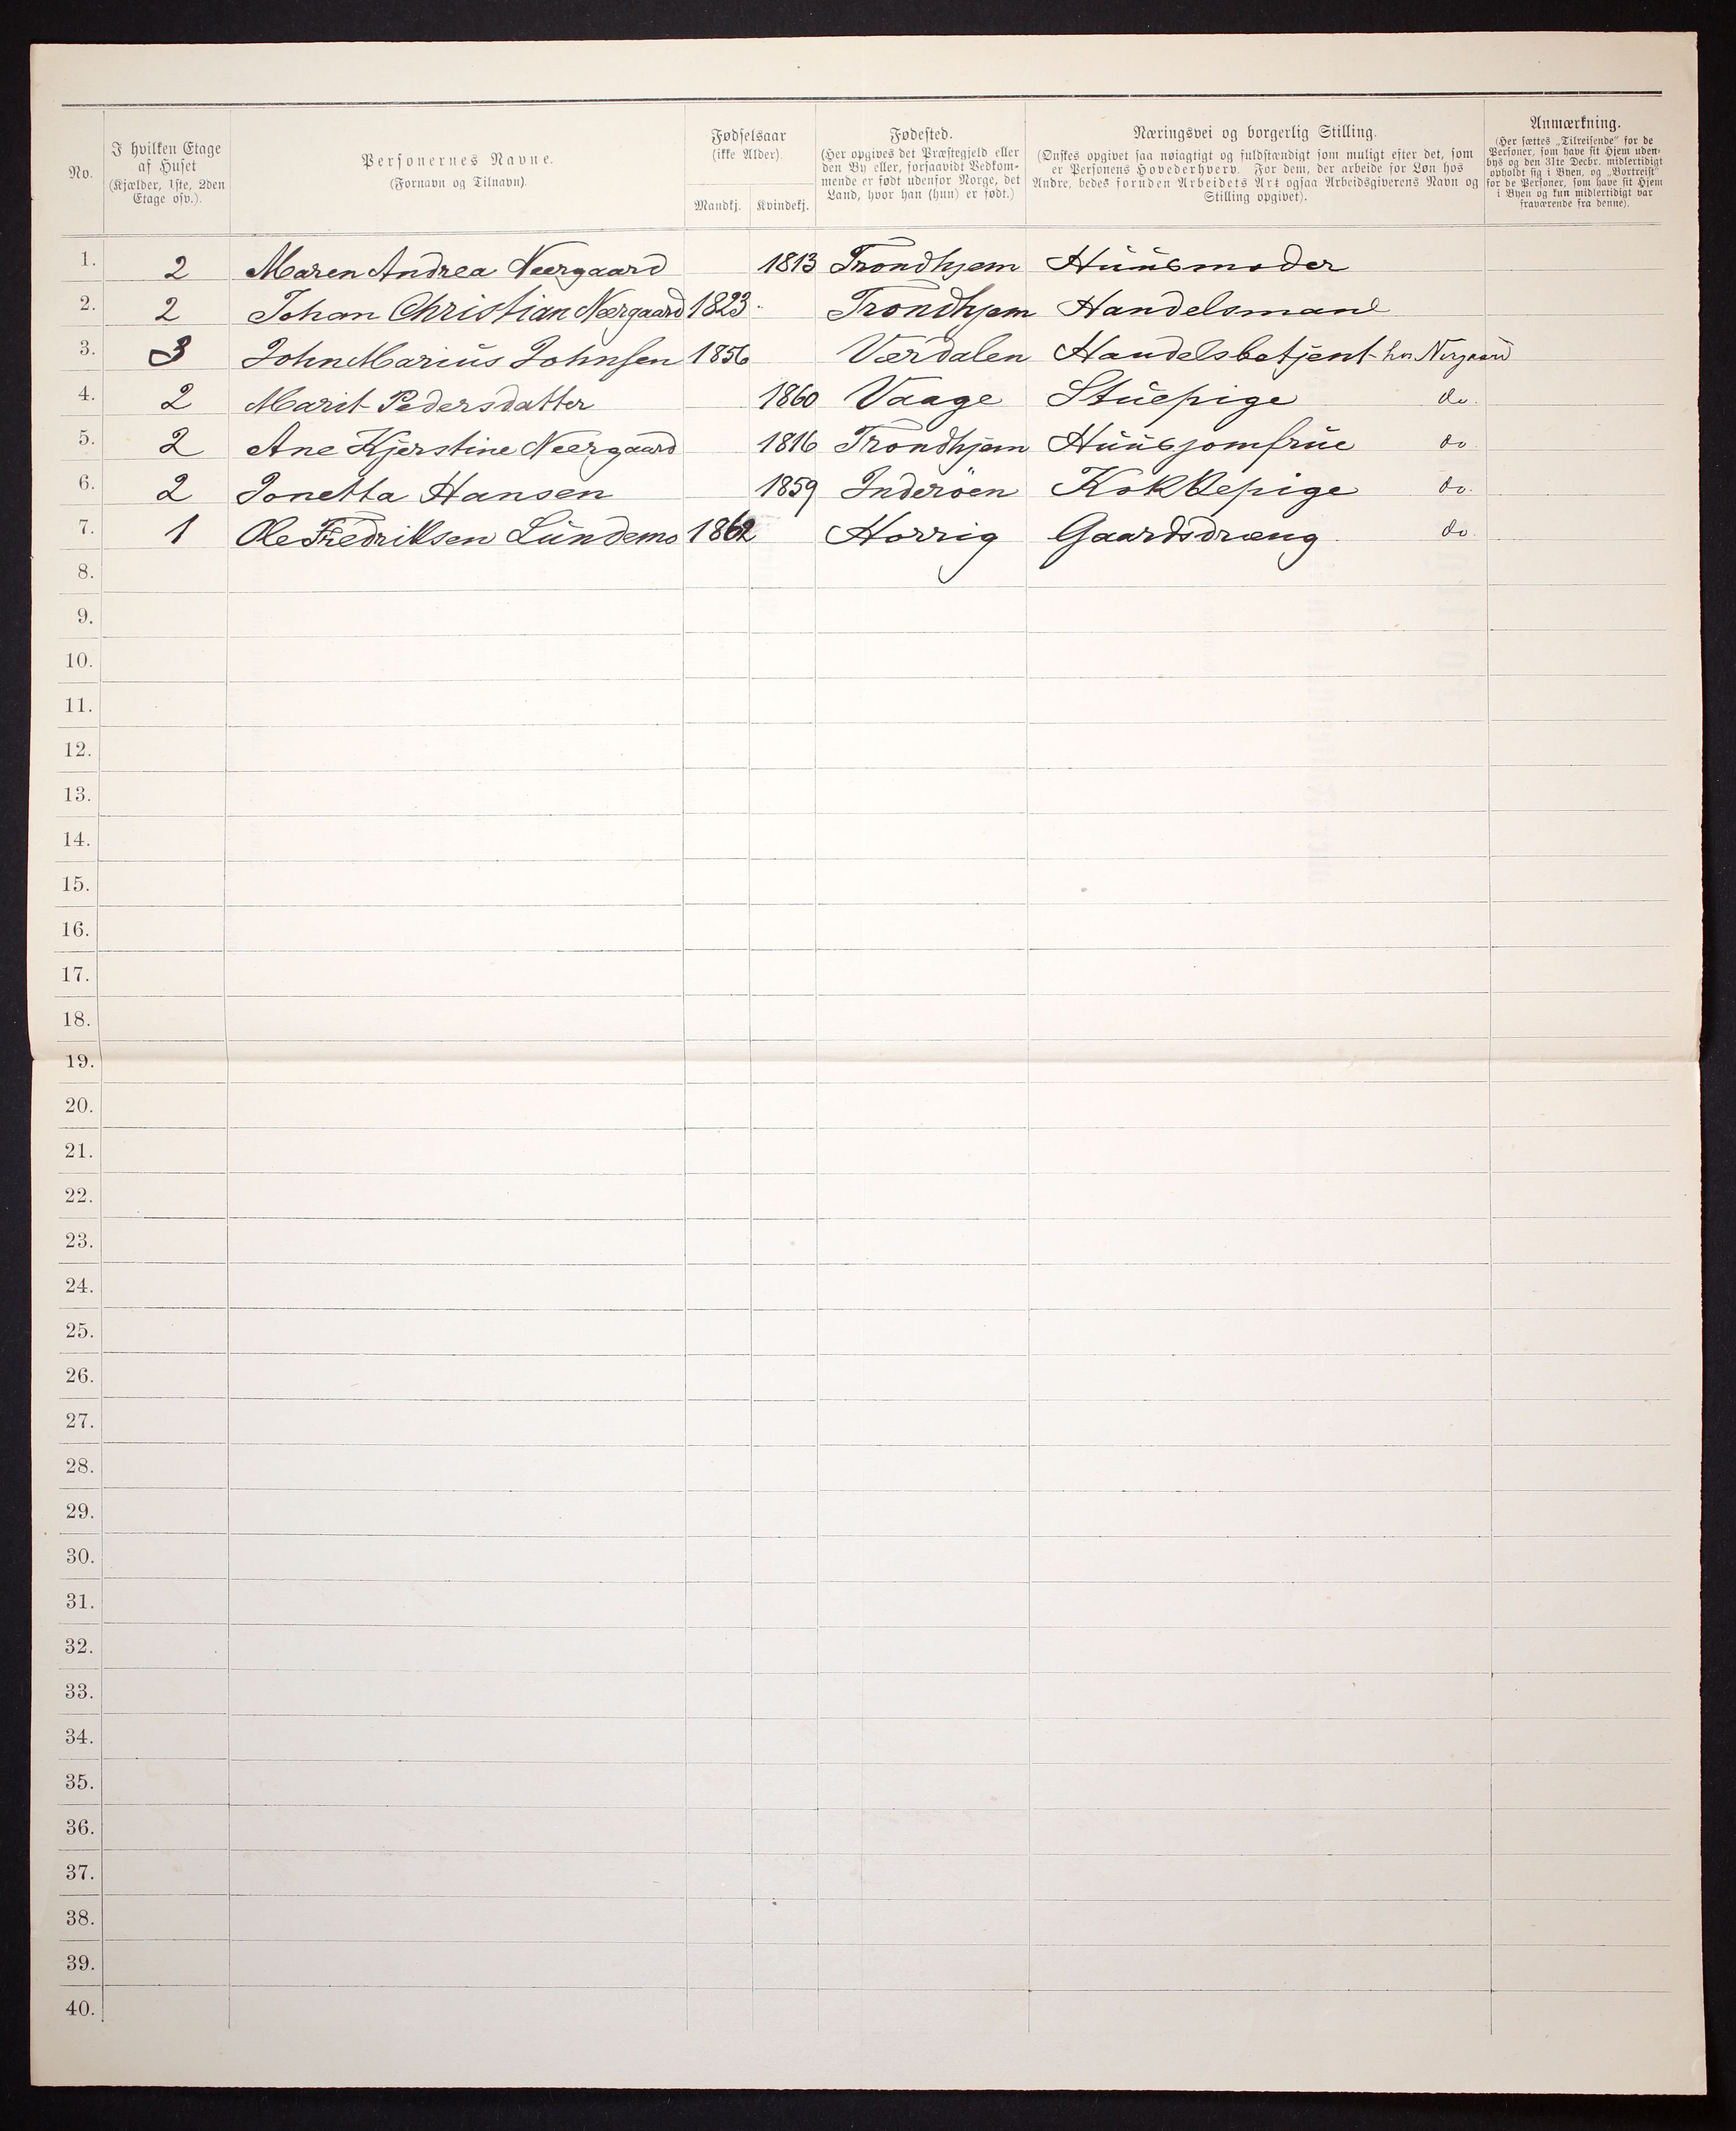 No.
I hvilken Etage af Huset (Kjælder, 1ste, 2den Etage osv.).
Personernes Navne. (Fornavn og Tilnavn).
Fødselsaar (ikke Alder).
Mandkj. Kvindekj.
Fødested. (Her opgives det Præstegjeld eller den By eller, forsaavidt Vedkommende er født udenfor Norge, det Land, hvor han (hun) er født.)
Næringsvei og borgerlig Stilling. (Ønskes opgivet saa nøiagtigt og fuldstændigt som muligt efter det, som er Personens Hovederhverv. For dem, der arbeide for Løn hos Andre, bedes foruden Arbeidets Art ogsaa Arbeidsgiverens Navn og Stilling opgivet).
Anmærkning. (Her sættes „Tilreisende" for de Personer, som have sit Hjem udenbys og den 31te Decbr. midlertidigt opholdt sig i Byen, og „Bortreist" for de Personer, som have sit Hjem i Byen og kun midlertidigt var fraværende fra denne).
1. 2 Maren Andrea Neergaard 1813 Trondhjem Huusmoder
2. 2 Johan Christian Neergaard 1823 Trondhjem Handelsmand
3. 3 John Marius Johnsen 1856 Værdalen Handelsbetjent hos Nergaard
4. 2 Marit Pedersdatter 1860 Vaage Stuepige do.
5. 2 Ane Kjerstine Neergaard 1816 Trondhjem Huusjomfrue do
6. 2 Jonetta Hansen 1859 Inderöen Kokkepige do.
7. 1 Ole Fredriksen Lundemo 1862 Horrig Gaardsdræng do.
8.
9.
10.
11.
12.
13.
14.
15.
16.
17.
18.
19.
20.
21.
22.
23.
24.
25.
26.
27.
28.
29.
30.
31.
32.
33.
34.
35.
36.
37.
38.
39.
40.